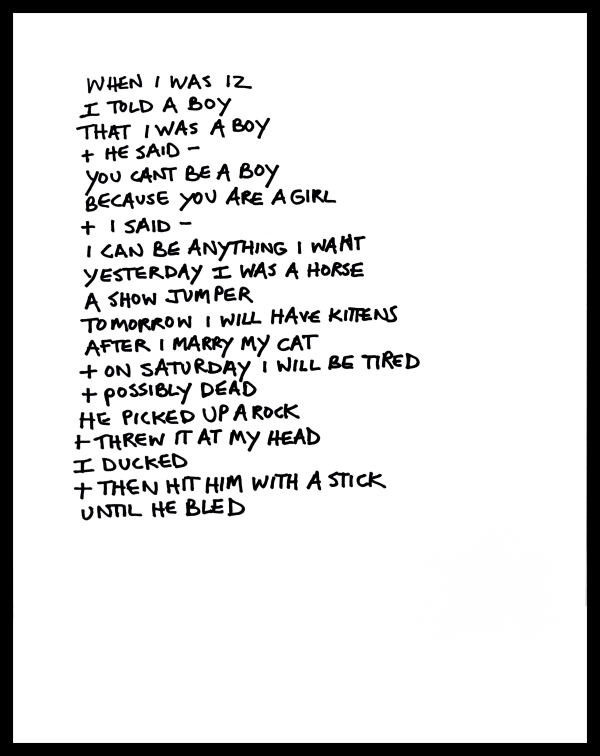 WHEN I WAS 12
I TOLD A BOY
THAT I WAS A BOY
+ HE SAID -
YOU CANT BE A BOY
BECAUSE YOU ARE A GIRL
+ I SAID -
I CAN BE ANYTHING I WANT
YESTERDAY I WAS A HORSE
A SHOW JUMPER
TOMORROW I WILL HAVE KITTENS
AFTER I MARRY MY CAT
+ ON SATURDAY I WILL BE TIRED
+ POSSIBLY DEAD
HE PICKED UP A ROCK
+ THREW IT AT MY HEAD
I DUCKED
+ THEN HIT HIM WITH A STICK
UNTIL HE BLED